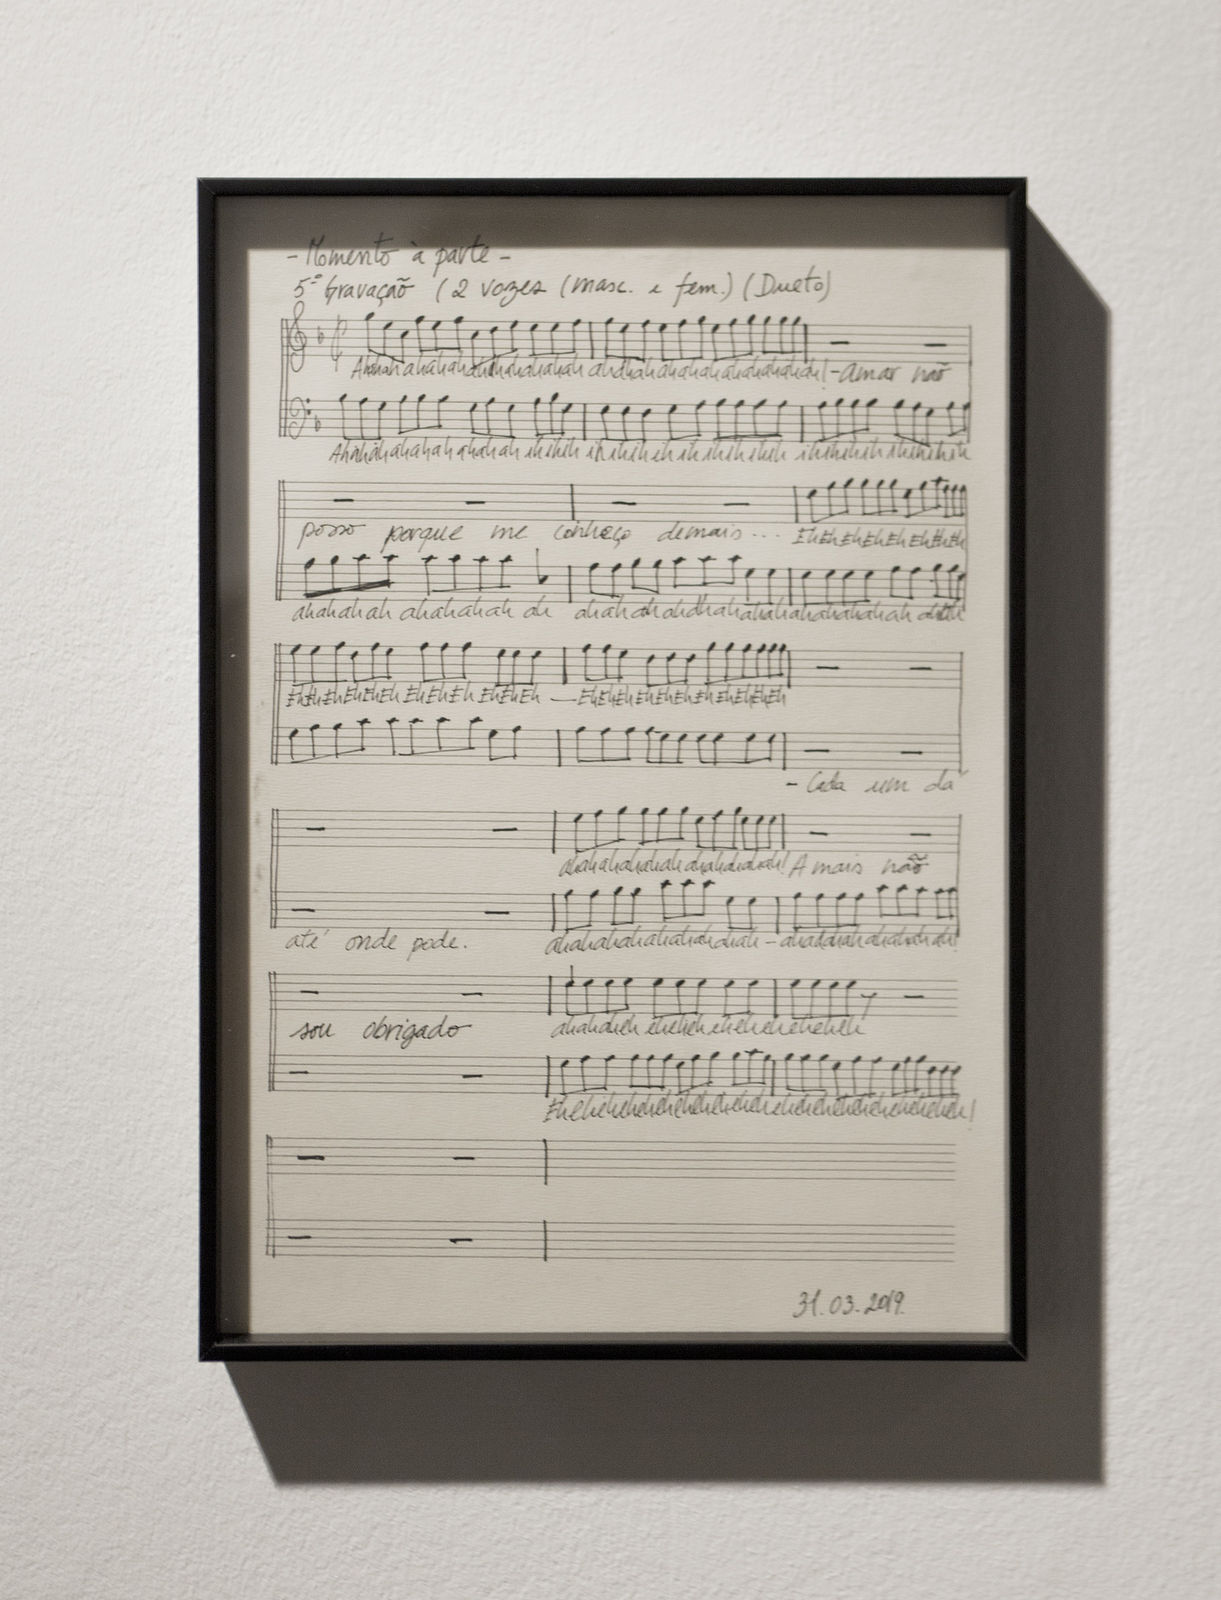 - Momento à parte -
5ª Gravação (2 vozes (masc. e fem.) (Dueto)
Ahahah ahahahahahahahahahahah ahahahahahahahahahahahah! - Amar não
Ahahahahahahah ahahahah eheheh eh eheheh eh eh eheheh eheh eheheheheh eheheheheh
posso porque me conheço demais... EhEhEhEhEhEhEhEh
ahahahahah ahahahahah ah ahahahahahahahahahahahahahahahah ahahah
EhEhEhEhEhEh EhEhEhEh EhEhEh — EhEhEh EhEhEhEh EhEhEhEh
- Cada um dá
ahahahahahahah ahahahahahah! A mais não
até onde pode. ahahahahahahahahah ahah - ahahahahahahahahah!
sou obrigado ahahaheh eheheh eheheheheheheh
Eheheheheheheheheheheheh eheheheheheheheheheheh!
31.03.2019.